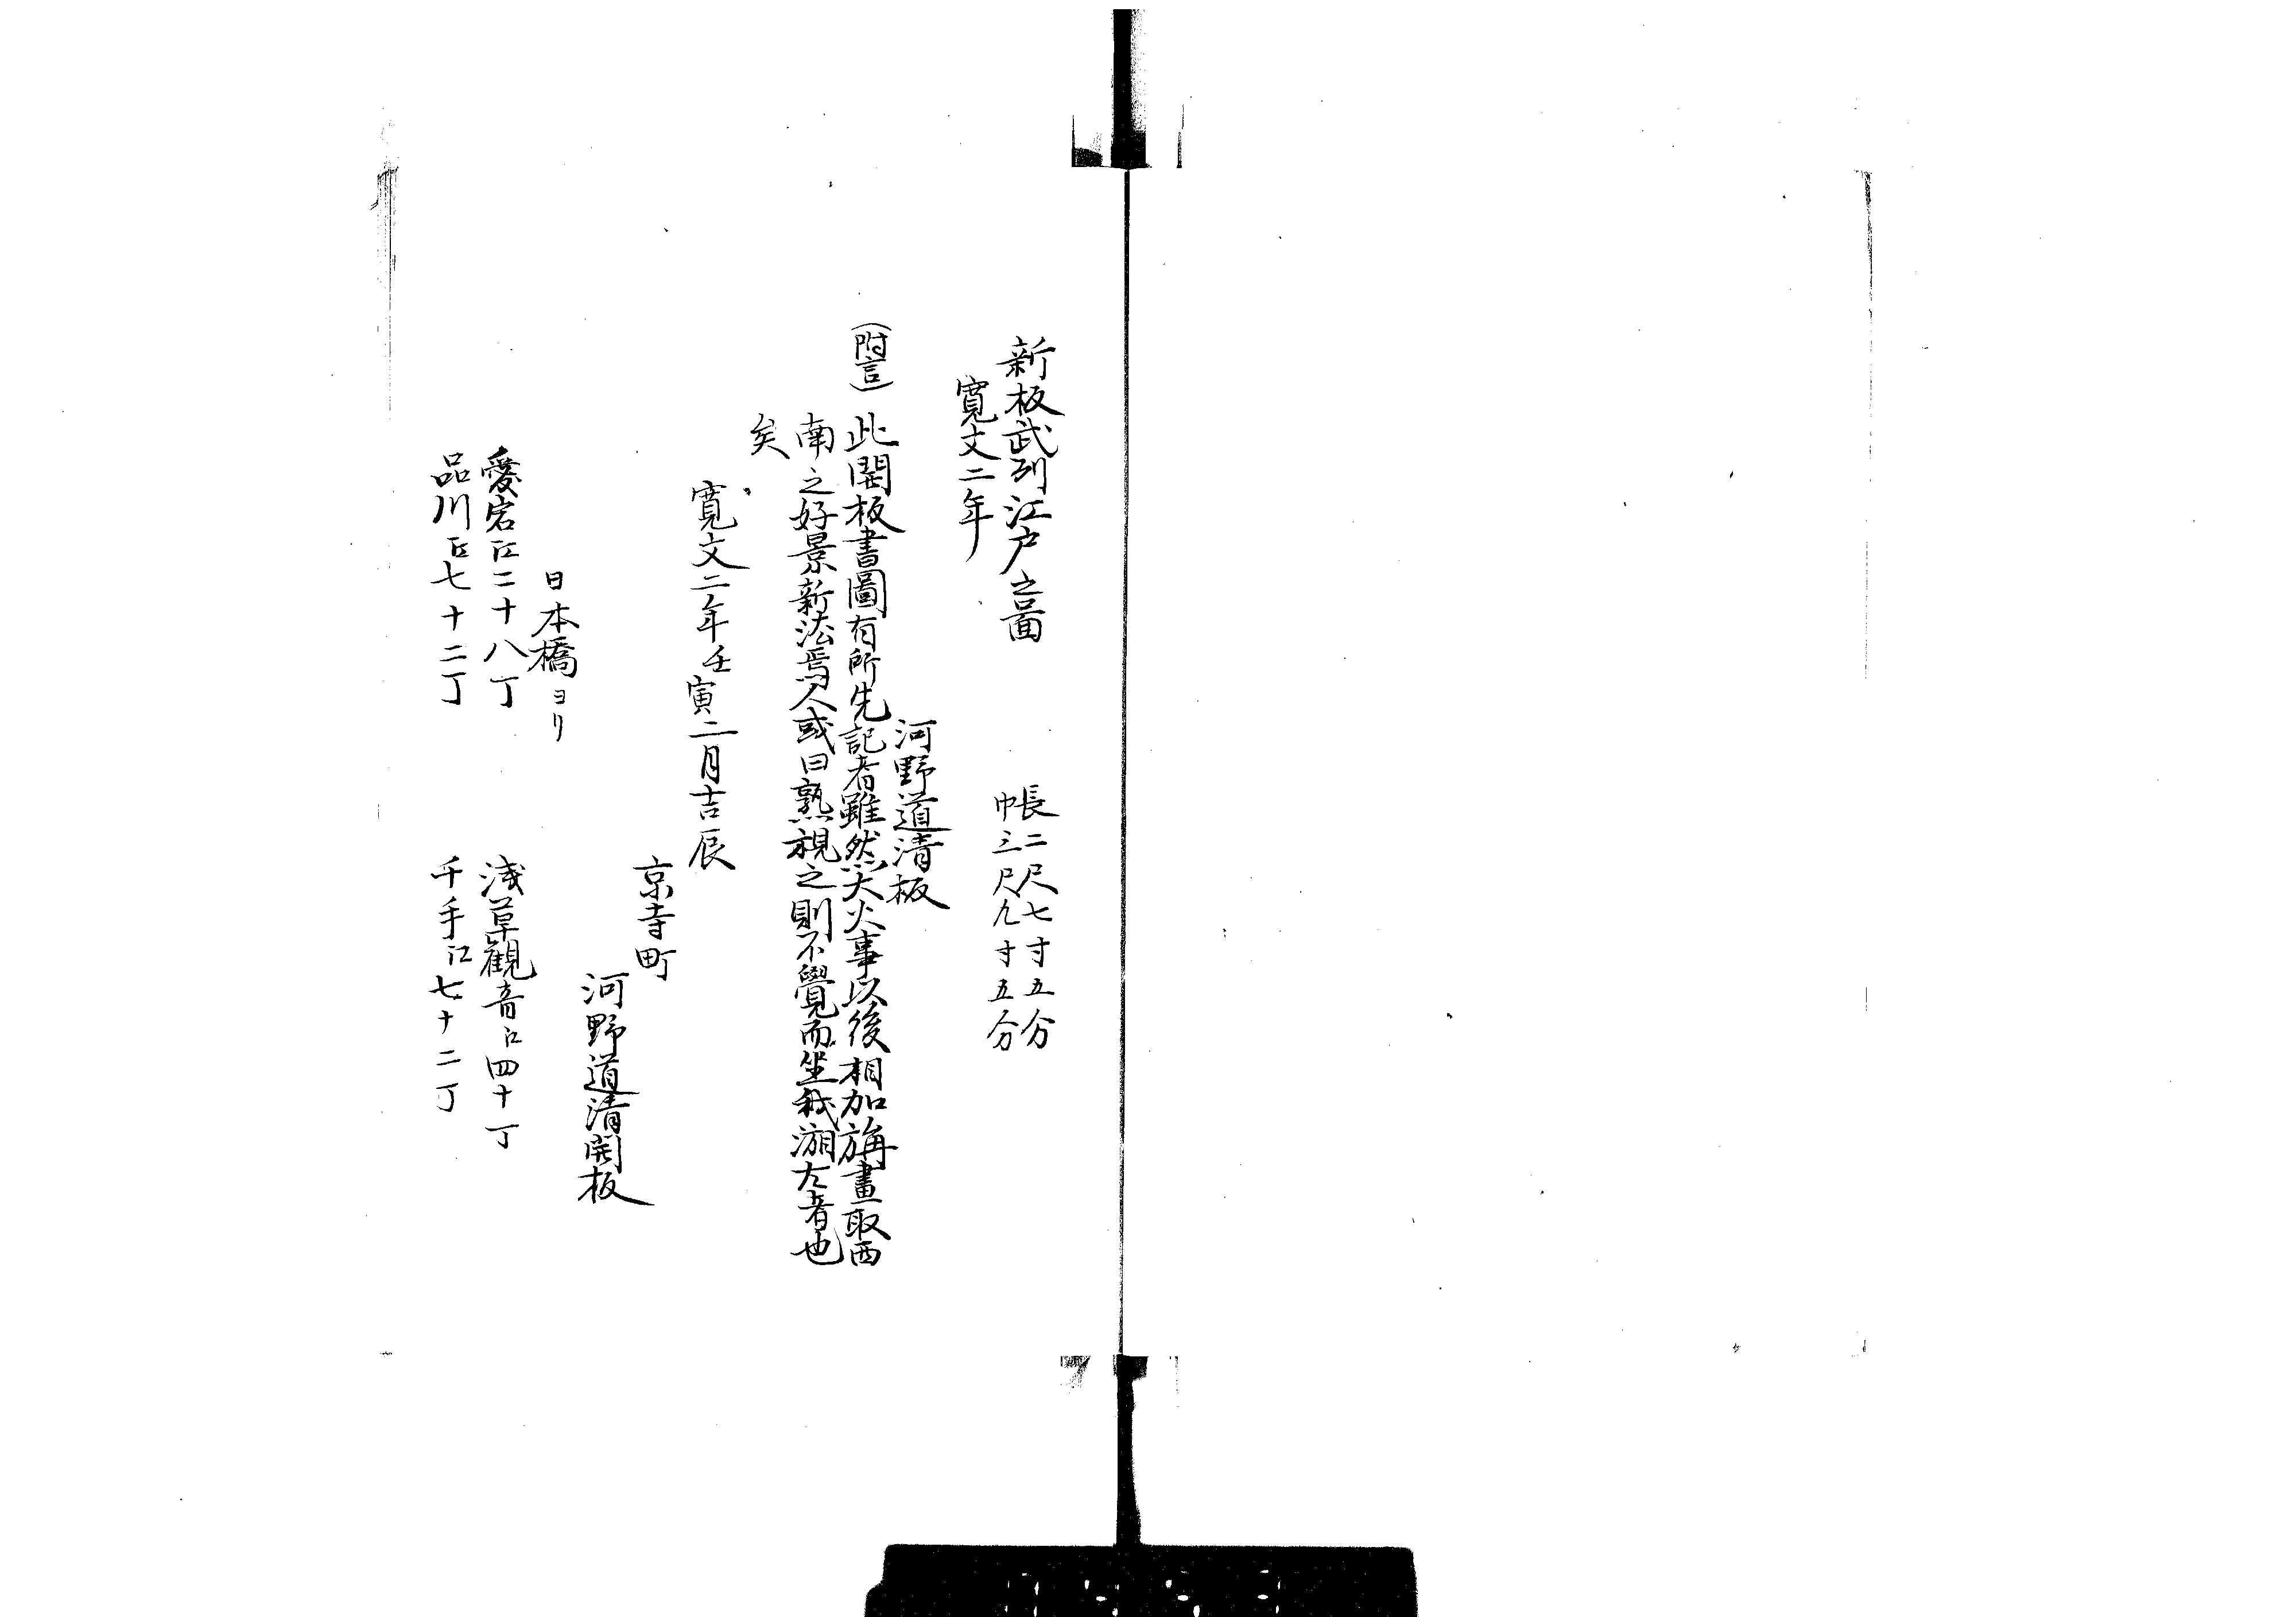 新板武列江戸之畐
長二尺七寸五分
巾三尺九寸五分
寛文二年
河野道清板
(附言)此開板書圖有所先記者雖然大火事以後相加旃畫取西
南之好景新法焉人或曰熟視之則不覺而坐我瀛大者也
矣
寛文二年壬寅二月吉辰
京寺町
河野道清開板
日本橋ヨリ
愛宕江二十八丁
浅草觀音江四十丁
品川江七十二丁
千手江七十二丁